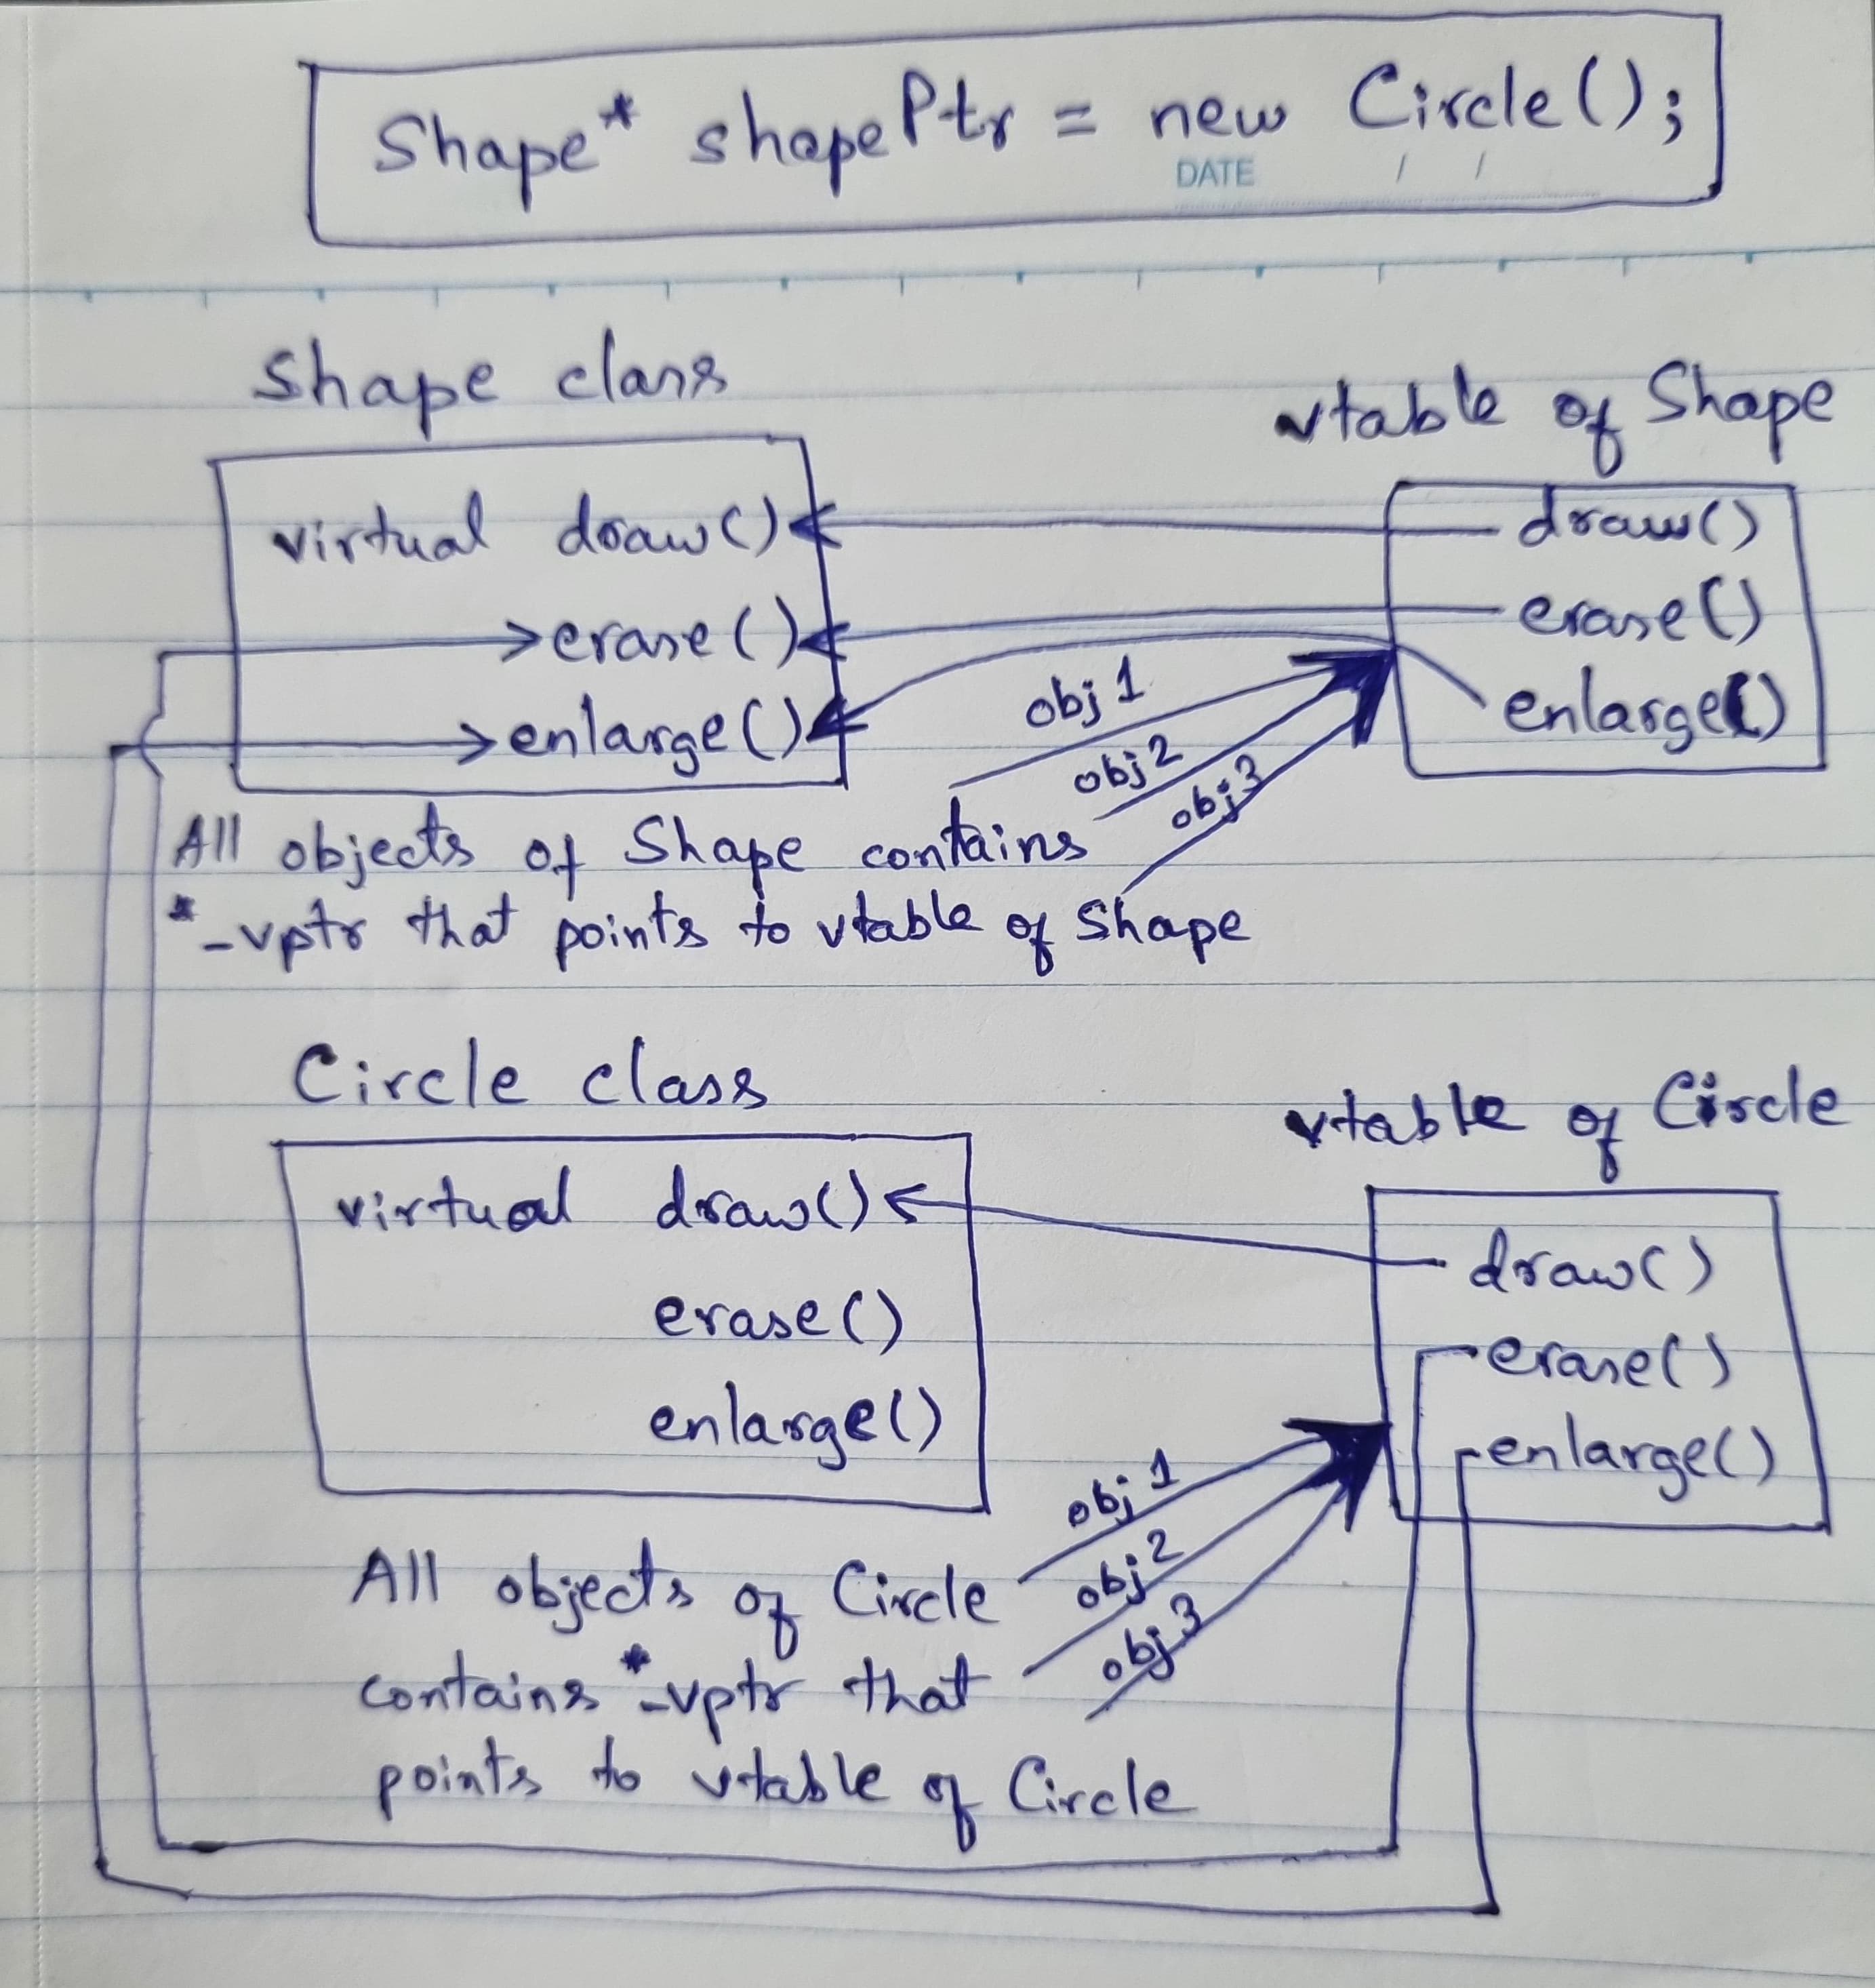 Shape* shapePtr = new Circle();
DATE / /
Shape class
vtable of Shape
virtual draw()
draw()
erase()
erase()
enlarge()
enlarge()
obj 1
obj 2
obj 3
All objects of Shape contains
*_vptr that points to vtable of Shape
Circle class
vtable of Circle
virtual draw()
draw()
erase()
erase()
enlarge()
enlarge()
obj 1
obj 2
obj 3
All objects of Circle
contains *_vptr that
points to vtable of Circle